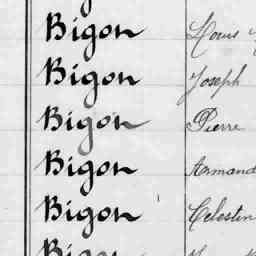 Bigon Louis
Bigon Joseph
Bigon Pierre
Bigon Armand
Bigon Celestin